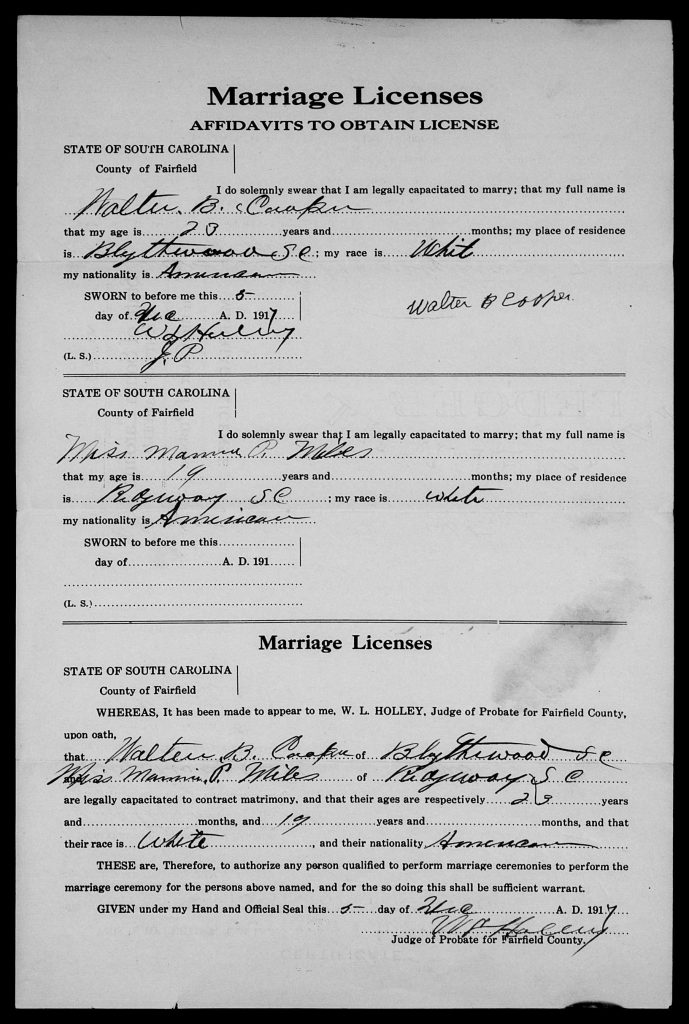 Marriage Licenses
AFFIDAVITS TO OBTAIN LICENSE
STATE OF SOUTH CAROLINA
County of Fairfield
I do solemnly swear that I am legally capacitated to marry; that my full name is
Walter B. Cooper
that my age is 23 years and months; my place of residence
is Blythewood S C; my race is Whit
my nationality is American
SWORN to before me this 5
day of Dec A. D. 1917
Walter B Cooper
W L Holley
(L. S.) J. P
STATE OF SOUTH CAROLINA
County of Fairfield
I do solemnly swear that I am legally capacitated to marry; that my full name is
Miss Mannie P. Miles
that my age is 19 years and months; my place of residence
is Ridgeway S C ; my race is white
my nationality is American
SWORN to before me this
day of A. D. 191
(L. S.)
Marriage Licenses
STATE OF SOUTH CAROLINA
County of Fairfield
WHEREAS, It has been made to appear to me, W. L. HOLLEY, Judge of Probate for Fairfield County,
upon oath,
that Walter B. Cooper of Blythewood S C
Miss Mannie P. Miles of Ridgeway S C
are legally capacitated to contract matrimony, and that their ages are respectively 23 years
and months, and 19 years and months, and that
their race is White, and their nationality American
THESE are, Therefore, to authorize any person qualified to perform marriage ceremonies to perform the
marriage ceremony for the persons above named, and for the so doing this shall be sufficient warrant.
GIVEN under my Hand and Official Seal this 5 day of Dec A. D. 1917
W L Holley
Judge of Probate for Fairfield County.